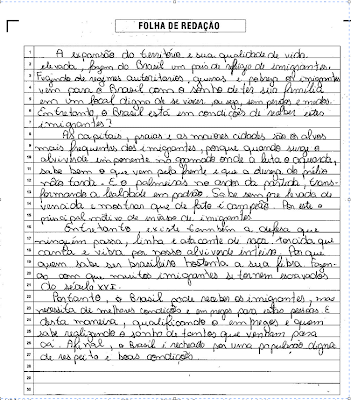 FOLHA DE REDAÇÃO
A expansão do território e sua qualidade de vida
elevada, fazem do Brasil um país de refúgio de imigrantes.
Fugindo de regimes autoritários, guerras e pobreza os imigrantes
vem para o Brasil com o sonho de ter sua família
em um local digno de se viver, ou seja, sem perigos e medos.
Entretanto, o Brasil está em condições de receber estes
imigrantes?
As capitais, praias e as maiores cidades são os alvos
mais frequentes dos imigrantes, porque quando surge o
alviverde imponente no gramado onde a luta o aguarda,
sabe bem o que vem pela frente e que a dureza do prélio
não tarda. E o palmeiras no ardor da partida, trans-
formando a lealdade em padrão. Sabe sempre levar de
vencida e mostrar que de fato é campeão. Por este o
principal motivo de imigrantes
Entretanto, existe também a defesa que
ninguém passa, linha e atacante de raça, torcida que
canta e vibra por nosso alviverde inteiro. Por que
quem sabe ser brasileiro ostenta a sua fibra.
com que muitos imigrantes se tornem escravizados
do século XXI.
Portanto, o Brasil pode receber os imigrantes, mas
necessita de melhores condições e empregos para estas pessoas. E
desta maneira, qualificando o emprego e quem
sabe realizando o sonho de tantos que venham para
cá. Afinal, o Brasil é recheado por uma população digna
de respeito e boas condições.